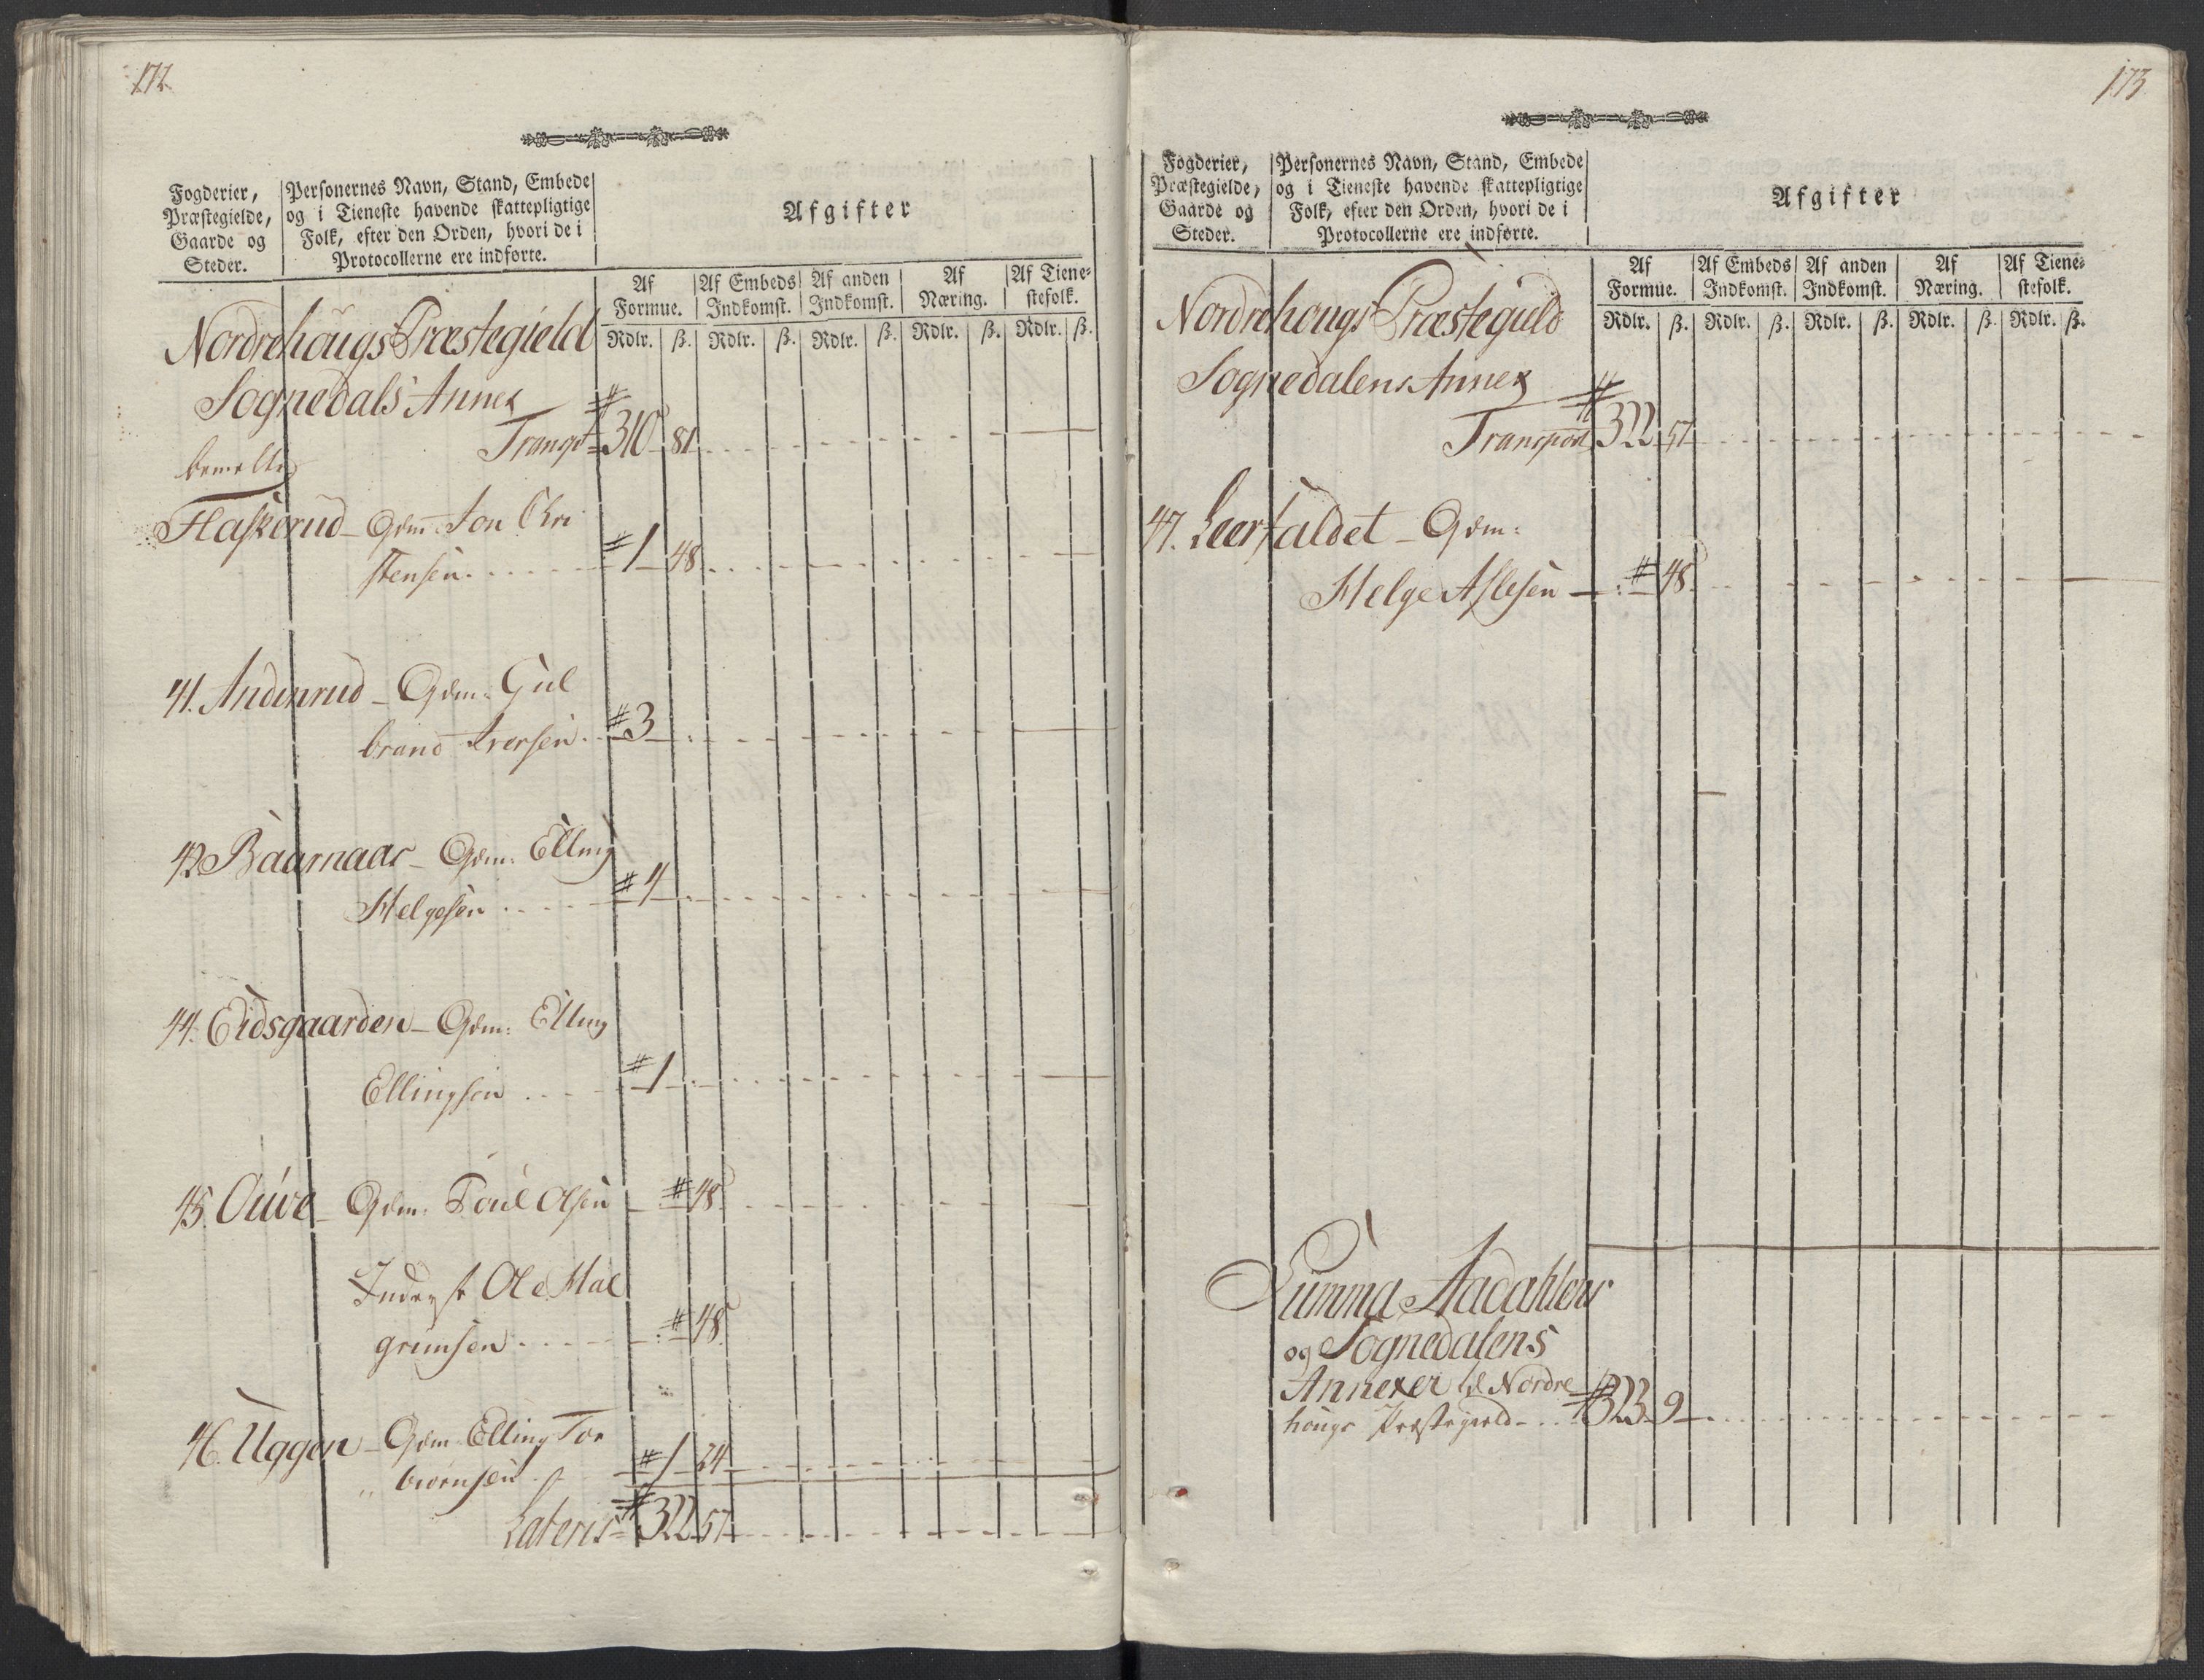 172
Fogderier,
Præstegielde,
Gaarde og
Steder.
Personernes Navn, Stand, Embede
og i Tieneste havende skattepligtige
Folk, efter den Orden, hvori de i
Protocollerne ere indførte.
Afgifter
Af Formue. Af Embeds Indkomst. Af anden Indkomst. Af Næring. Af Tienestefolk.
Rdlr. ß. Rdlr. ß. Rdlr. ß. Rdlr. ß. Rdlr. ß.
Nordrehougs Præstegield
Sognedals Annex
Transpt 310 81
bemelte
Flaskerud - Gdm: Jon Chri
stensen 1 48
41. Andenrud - Gdm: Gul
brand Iversen 3
42. Baarnaas - Gdm: Elling
Helgesen 4
44. Eidsgaarden - Gdm: Elling
Ellingsen 1
45. Ouve - Gdm: Poul Olsen 48
Inderst Ole Hal
grimsen 48
46. Uggen - Gdm: Elling Tor
biørnsen 1 24
Lateris 322 57
173
Fogderier,
Præstegielde,
Gaarde og
Steder.
Personernes Navn, Stand, Embede
og i Tieneste havende skattepligtige
Folk, efter den Orden, hvori de i
Protocollerne ere indførte.
Afgifter
Af Formue. Af Embeds Indkomst. Af anden Indkomst. Af Næring. Af Tienestefolk.
Rdlr. ß. Rdlr. ß. Rdlr. ß. Rdlr. ß. Rdlr. ß.
Nordrehougs Præstegield
Sognedalens Annex
Transport 322 57
47. Leerfaldet - Gdm:
Helge Aslesen 48
Summa Aadahlens
og Sognedalens
Annexer til Nordre
hougs Præstegield 323 9